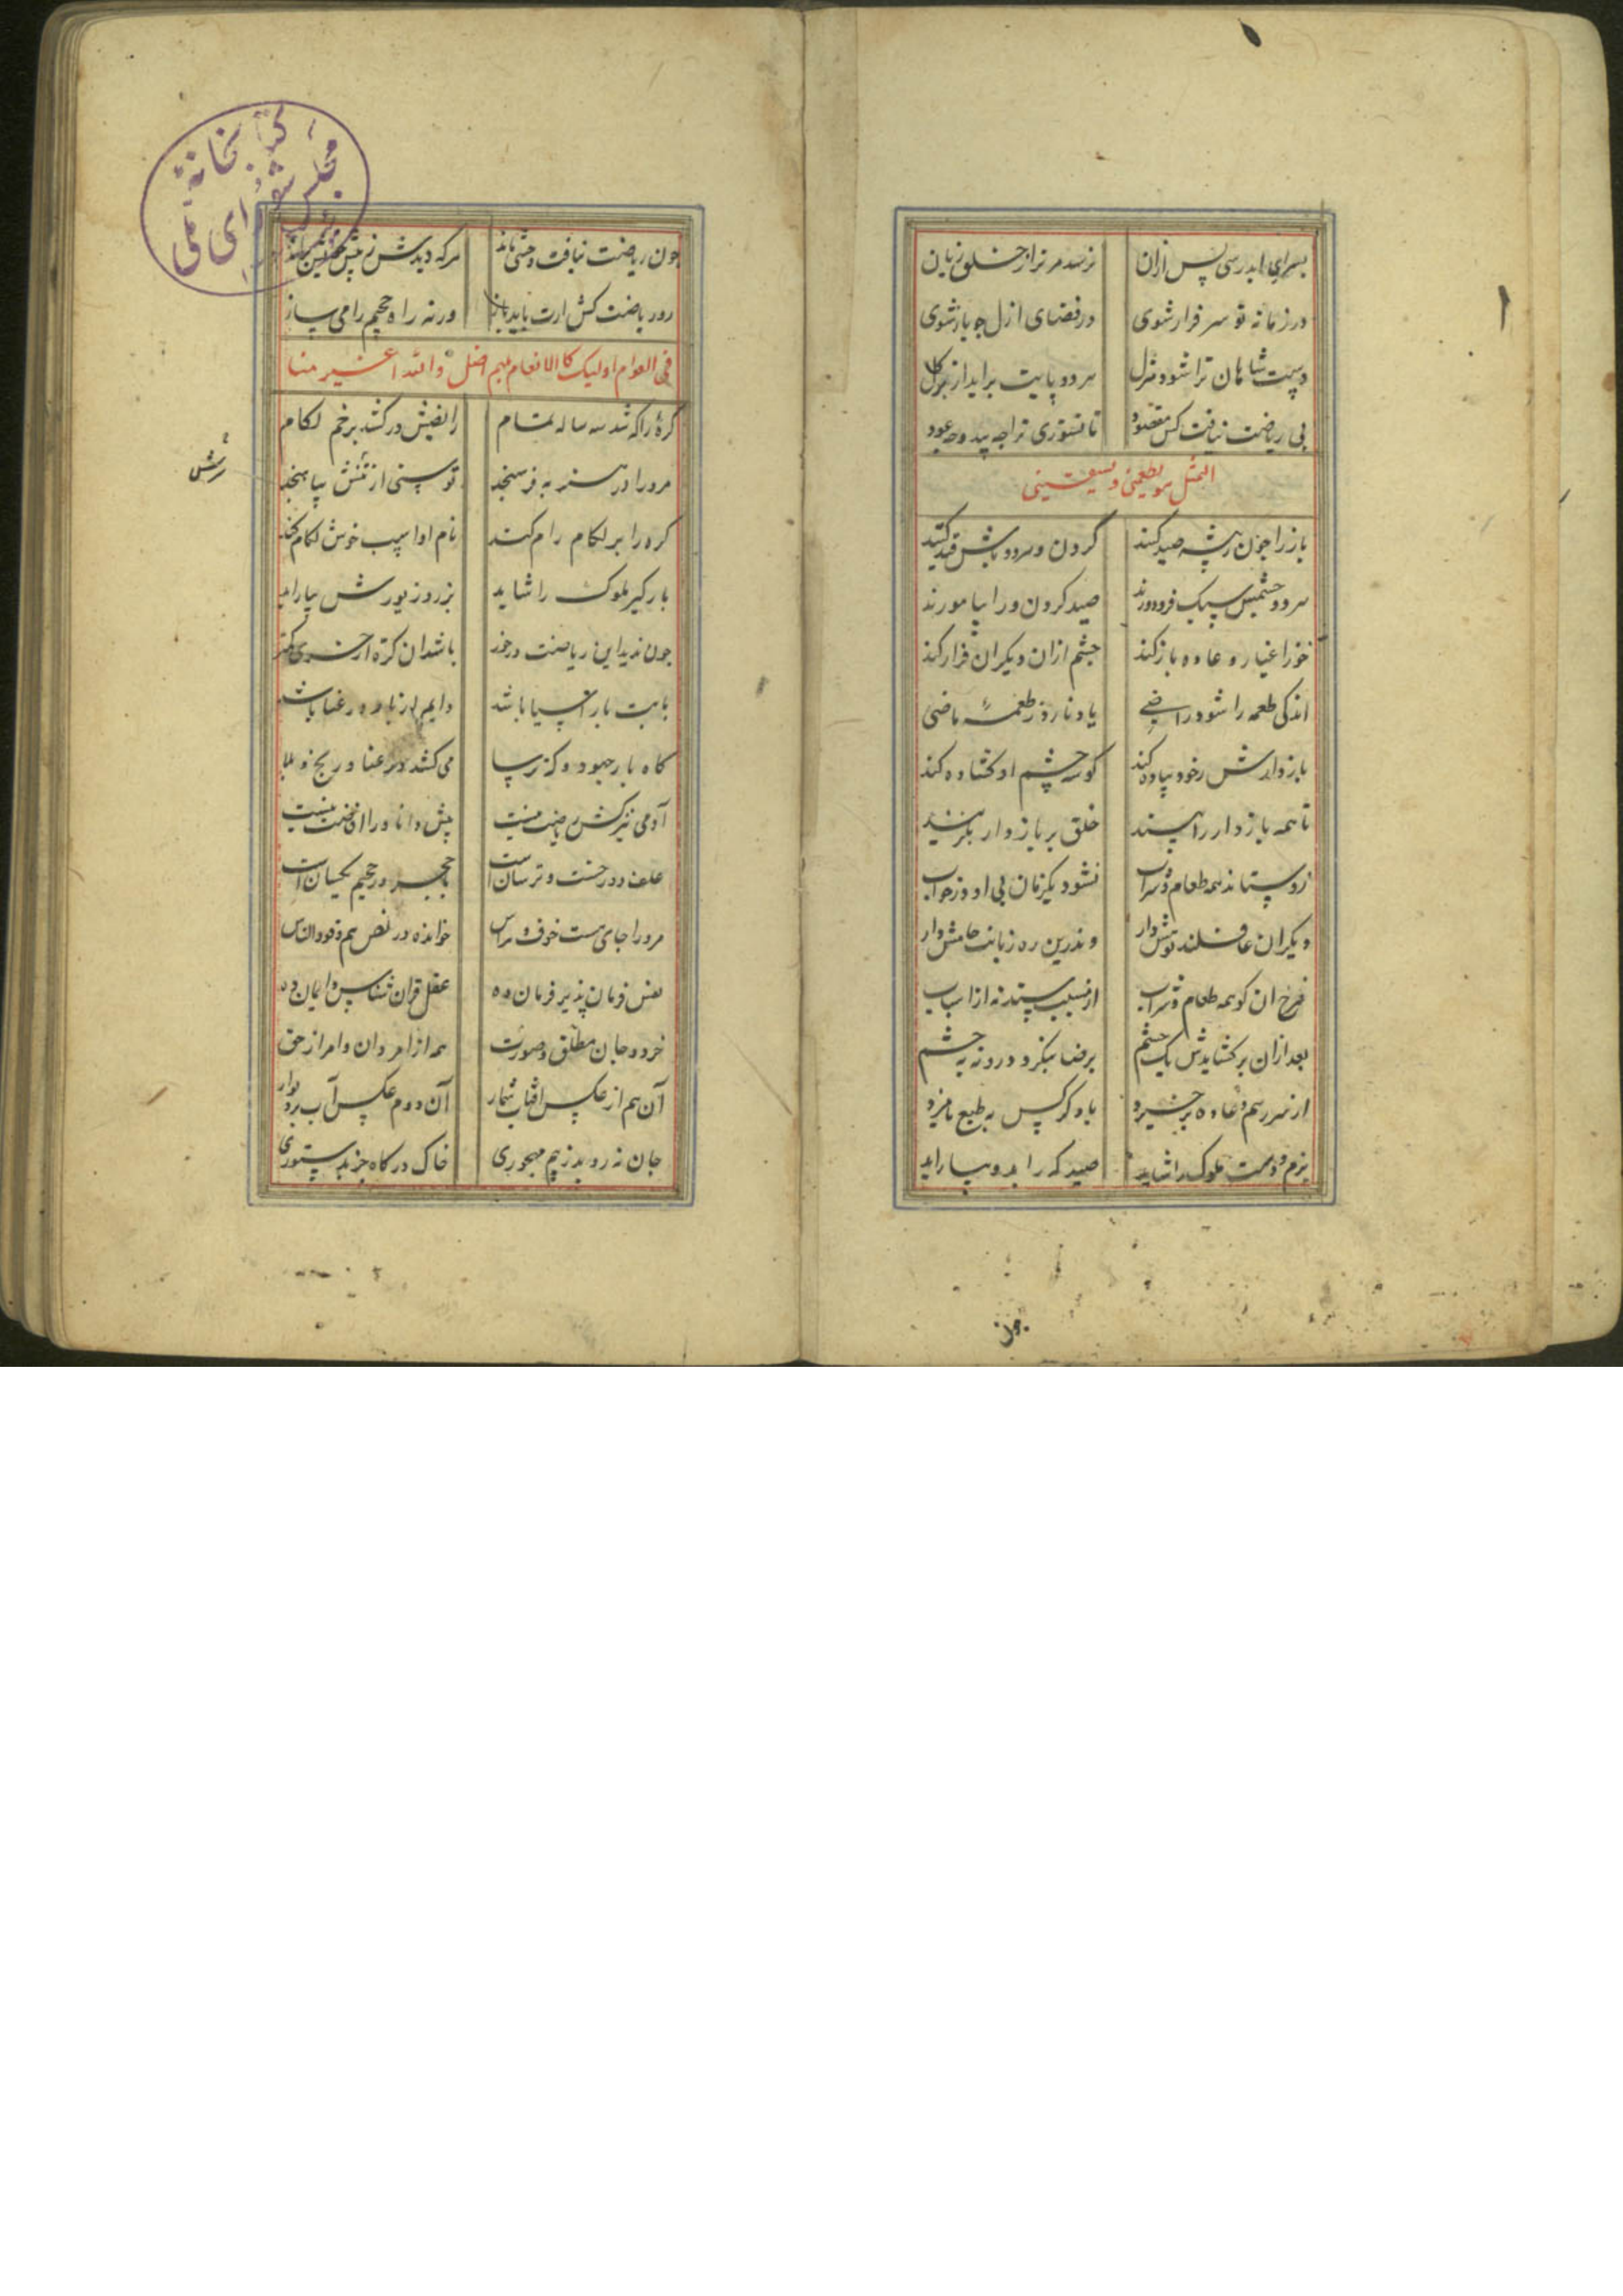 بسرای ابد رسی پس ازان نرسد مر ترا از خلق زیان
در زمانه تو سرفراز شوی در فضای ازل چو باز شوی
دست شاهان ترا شود منزل سر دو پایت براید از گل
بی ریاضت نیافت کس مقصود تا نسوزی ترا چه بید و چه عود
التمثل هو یطعمنی و یسقینی
باز را چون ز بیشه صید کنند گردن و هر دو پاش قید کنند
هر دو چشمش سبک فرو دوزند صید کردن ورا بیاموزند
خو ز اغیار و عاده باز کند چشم ازان دیکران فراز کند
اندکی طعمه را شود راضی یاد نارد ز طعمهٔ ماضی
بازدارش ز خود پیاده کند گوشه چشم او گشاده کند
تا همه بازدار را بیند خلق بر بازدار نگزیند
زو ستاند همه طعام و شراب نشود یکزمان بی او در خواب
دیگران غافلند توش دار و ندرین ره زبانت خامش دار
فرخ ان کو همه طعام و شراب از مسبب ستد نه از اسباب
بعد ازان بر کشایدش یک چشم برضا بنگرد درو نه به خشم
از سر رسم و عاده برخیزد با دگر کس به طبع نامیزد
بزم و دست ملوک را شاید صیدگه را بدو بیاراید
چون
چون ریاضت نیافت وحشی ماند هرکه دیدش ز پیش خویش براند
رو ریاضت کش ارت باید باز ورنه راه جحیم را می ساز
فی العوام اولیک کالانعام بل هم اضل و الله اعنی منا
کرهٔ را که شد سه ساله تمام رایضش درکشد بزخم لگام
مر ورا در هنر به فرسنجد توسنی از تنش بیاهنجد
رتنش
کره را بر لگام رام کند نام او اسپ خوش لگام کند
بارگیر ملوک را شاید بزر و زیورش بیاراید
چون ندید این ریاضت درخور باشد ان کره از خری کمتر
بابت بار اسیا باشد دایم از بار در عنا باشد
گاه بار جهود و گه ترسا می کشد در عنا و رنج و بلا
آدمی نیز کش ریاضت نیست پیش دانا ورا افاضت نیست
علف دوزخست و ترسان است با حجر در جحیم یکسان است
مر ورا جای هست خوف و هراس خوانده در نص هم وقودها الناس
نفس فرمان پذیر و فرمان ده عقل قران شناس و ایمان ده
خرد و جان مطلق و صورت همه از امر دان و امر از حق
آن هم از عکس افتاب شمار آن دوم عکس آب بر دیوار
جان نه روید ز بیم مهجوری خاک درگاه جز به دستوری
کتابخانهٔ
مجلس شورای ملی